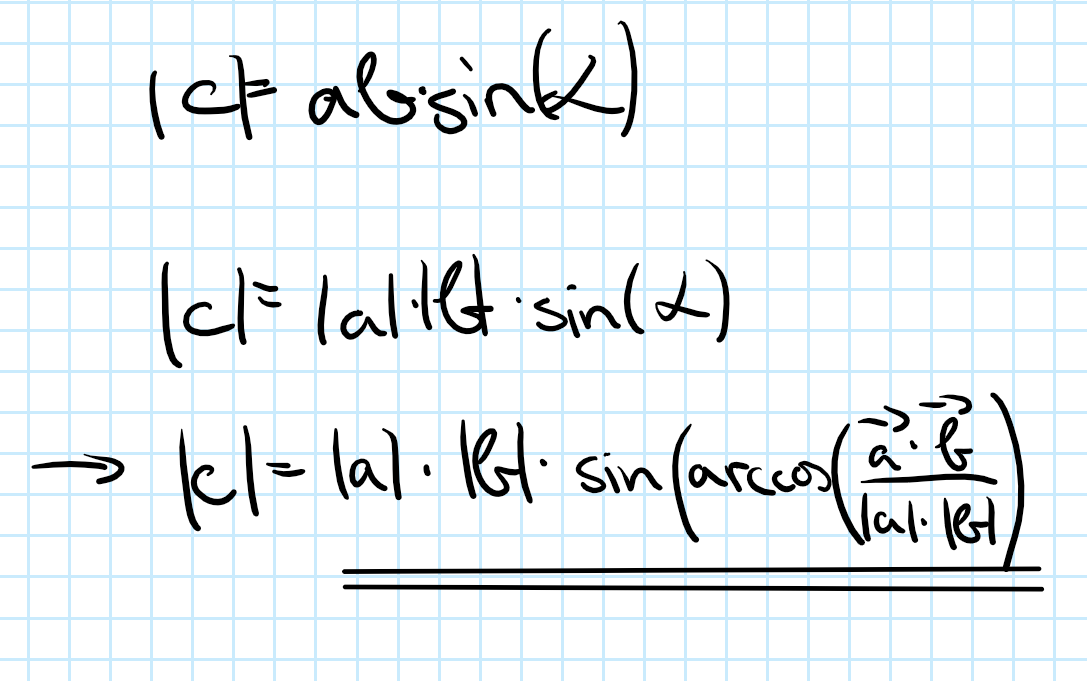 |c|= ab·sin(α)
|c|= |a|·|b|·sin(α)
→ |c|= |a|·|b|·sin(arccos(a⃗·b⃗/|a|·|b|)